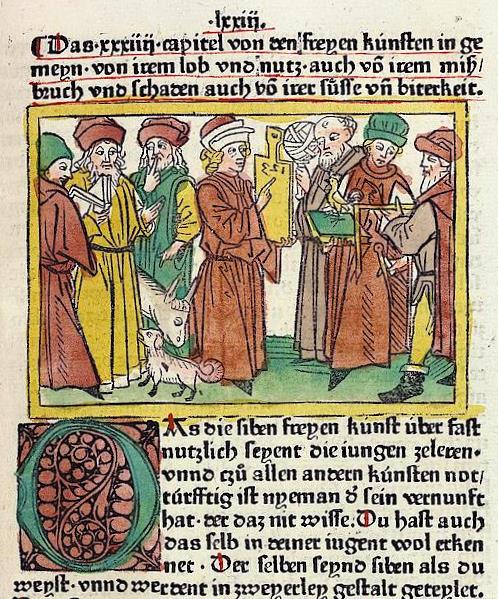 ·lxxiij.
¶Das·xxxiiij·capitel von den freyen kúnsten in ge
meyn·von irem lob vnd nutz·auch võ irem miß/
bruch vnd schaden auch võ irer sússe vñ biterkeit.
DAs die siben freyen kunst úber fast
nutzlich seyent die iungen zeleren·
vnnd czů allen andern kúnsten not/
túrfftig ist nyeman d̓ sein vernunft
hat·der daz nit wisse. Du hast auch
das selb in deiner iugent wol erken
net· Der selben seynd siben als du
weyst·vnnd werdent in zweyerley gestalt geteylet.